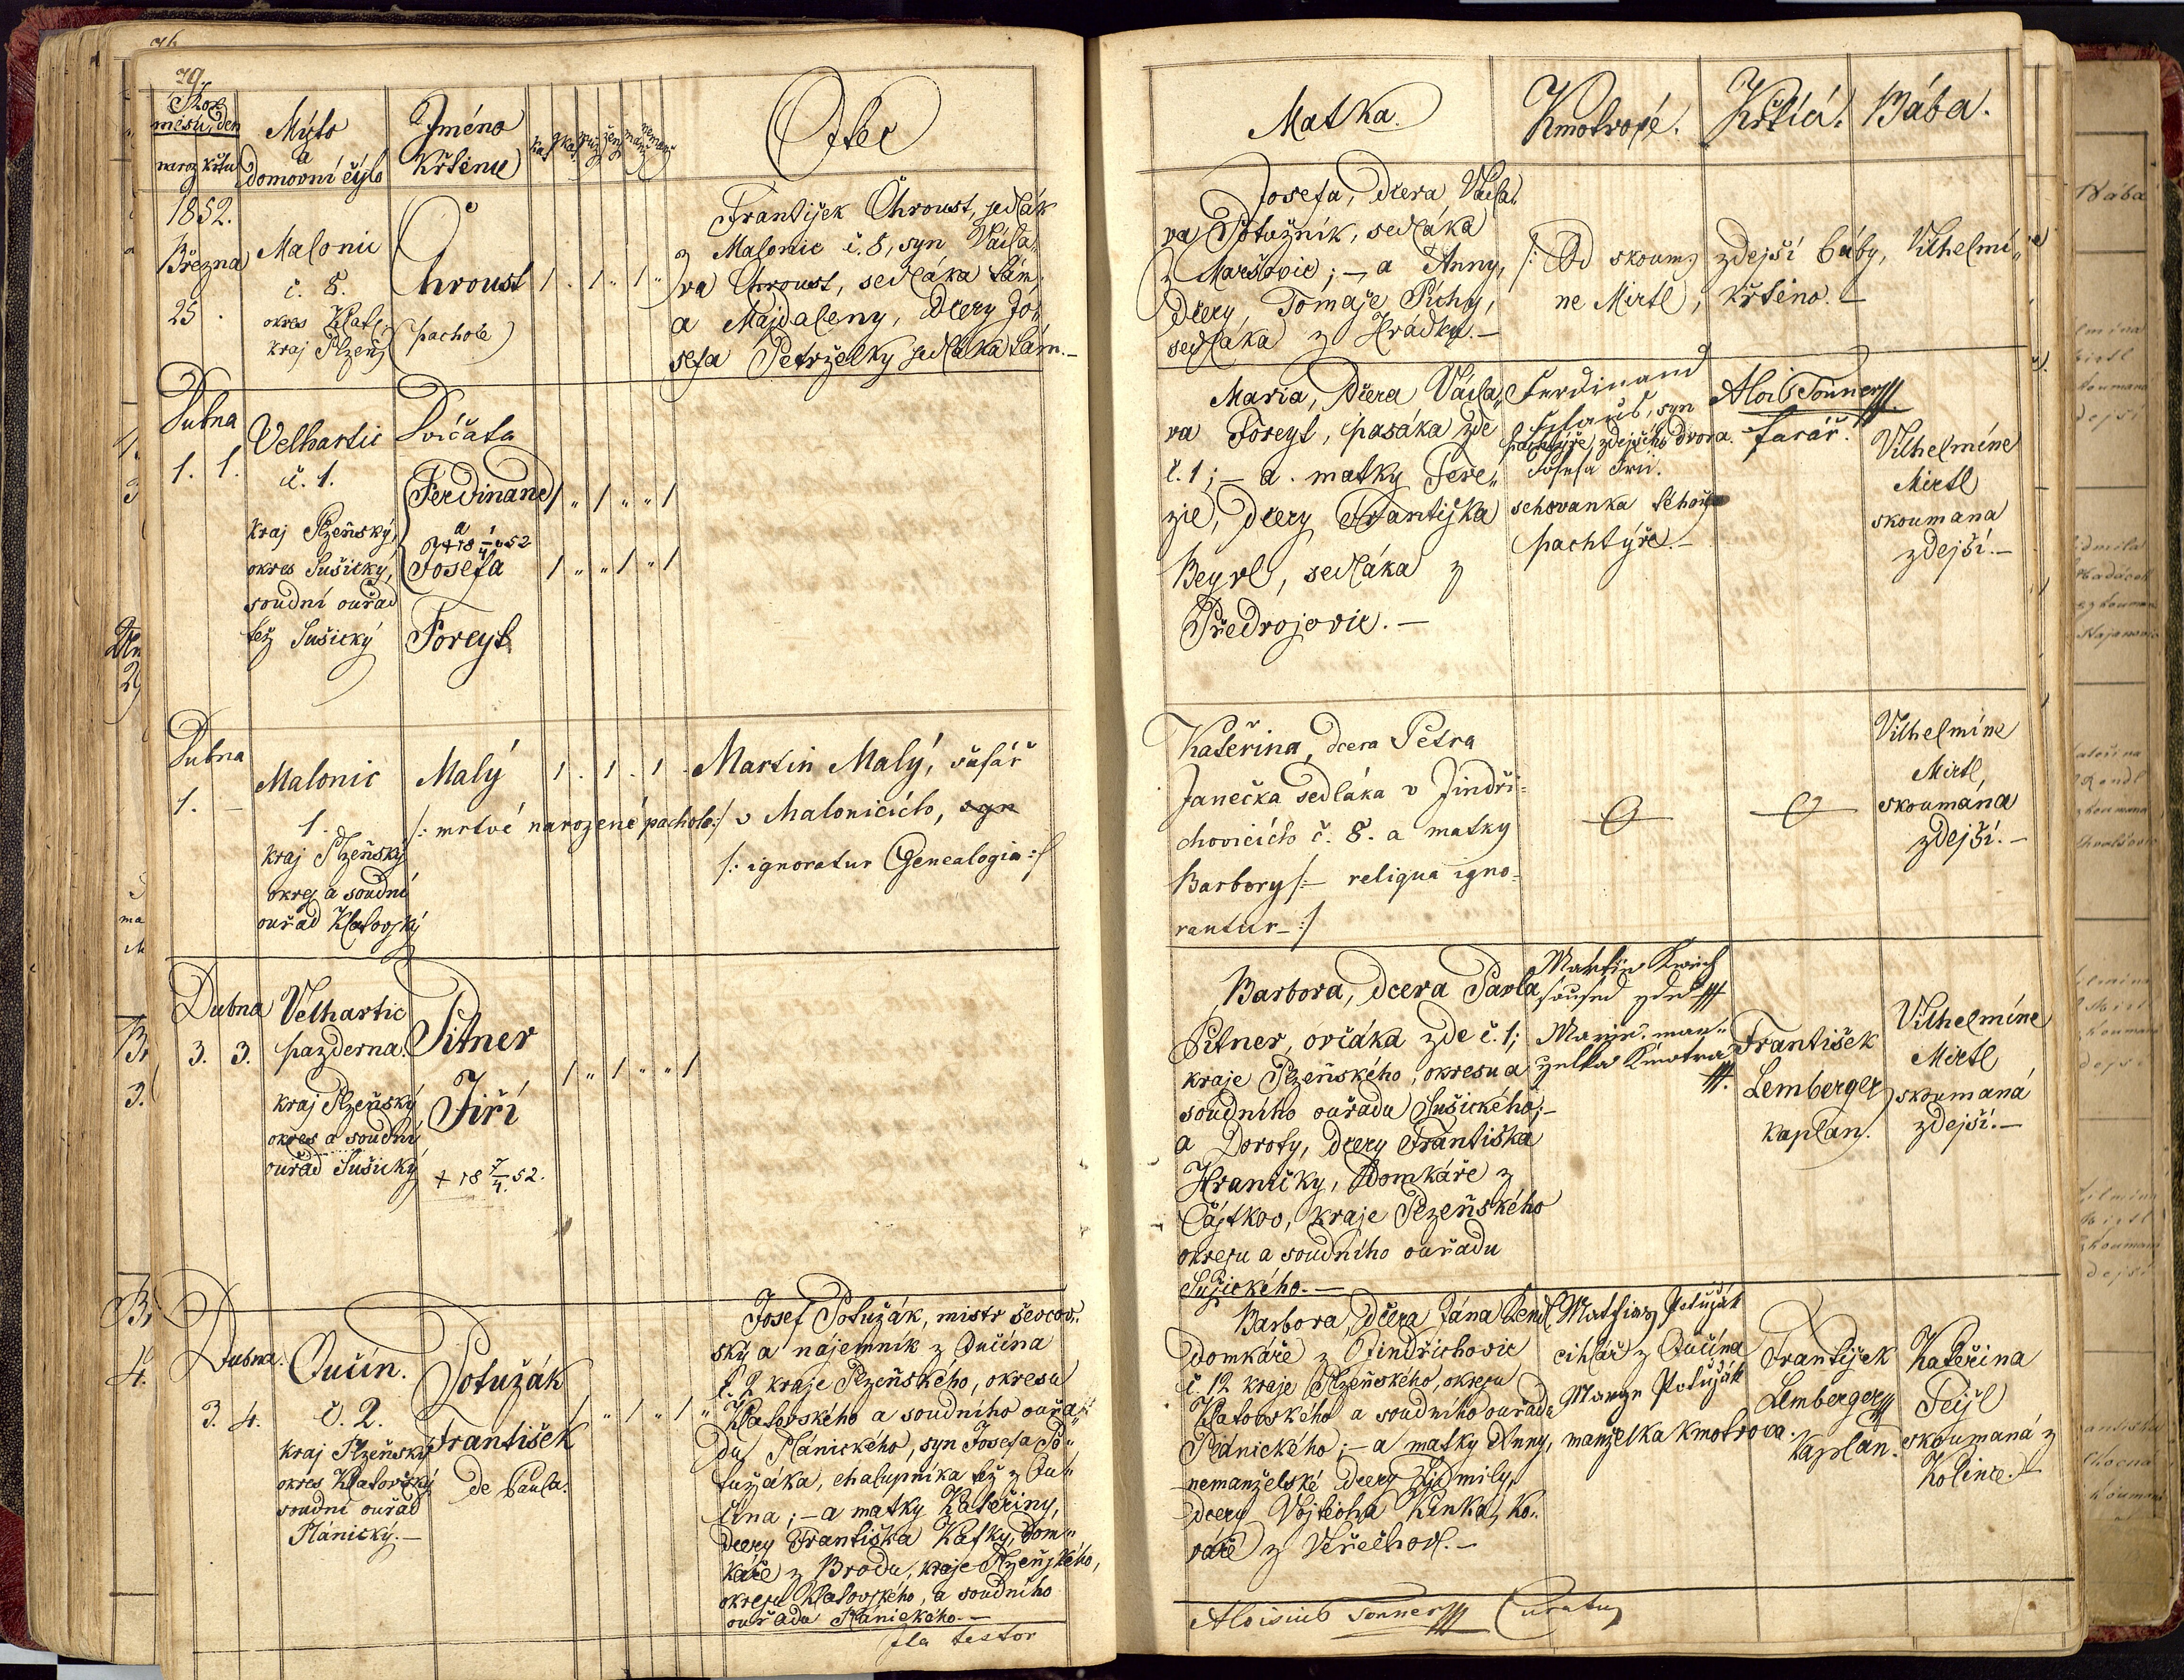 79.
Rok
měsíc, den
naroz. křtu
Mýsto
a
domovní čýslo
Jméno
křtěnce
Otec
1852.
Března
25
Malonic
č. 8.
okres Klat.
kraj Plzeň.
Chroust
(pachole)
1 . 1 . 1 "
František Chroust, sedlák
z Malonic č. 8, syn Václa,
va Chroust, sedláka tám,
a Majdaleny, dcery Jo,
sefa Petrželky sedláka tám.-
Dubna
1. 1.
Velhartic
č. 1.
kraj Plzeňský,
okres Sušický,
soudní ouřad
též Sušický
Dvíčata
Ferdinand
a
Josefa
Foreyt
1 " 1 " " 1
1 " " 1 " 1
Dubna
1. -
Malonic
1.
kraj Plzeňský
okres a soudní
ouřad Klatovský
Malý
/: mrtvé narozené pachole :/
1 . 1 . 1 .
Martin Malý, šafář
v Malonicích, syn
/: ignoratur Genealogia :/
Dubna
3. 3.
Velhartic
pazderna.
kraj Plzeňský
okres a soudní
ouřad Sušický
Pitner
Jiří
+ 18 7/4. 52.
1 " 1 " " 1
Dubna.
3. 4.
Oučín.
č. 2.
kraj Plzeňský
okres Klatovský
soudní ouřad
Plánický.-
Potužák
František
de Paula.
1 " 1 " 1 "
Josef Potužák, mistr ševcov,,
ský a nájemník z Oučína
č. 2 kraje Plzeňského, okresu
Klatovského a soudního ouřa,,
du Plánického, syn Josefa Po,,
tužáka, chalupníka též z Ou,,
čína; - a matky Kateřiny,
dcery Františka Kafky, dom,,
káře z Brodu, kraje Plzeňského,
okresu Klatovského, a soudního
ouřadu Plánického.-
Ita testor
Matka.
Kmotrové.
Křtící.
Bába.
Josefa, dcera Václa,
va Potužník, sedláka
z Maršovic; - a Anny,
dcery, Tomáše Píchy,
sedláka z Hrádku.-
/: Od skoum. zdejší báby, Vilhelmí,,
ne Mirtl, křtěno.-
Maria, dcera Václa,,
va Foreyt, pasáka zde
č. 1; - a matky Tere,,
zie, dcery Františka
Beyrl, sedláka z
Předvojovic.-
Ferdinand
syn
pachtýře, zdejšího dvora.
Josefa
schovanka téhož
pachtýře.-
Alois Tonner
farář.
Vilhelmíne
Mirtl
skoumana
zdejší.-
Kateřina, dcera Petra
Janečka sedláka v Jindři-
chovicích č. 8. a matky
Barbory /:- reliqua igno-
rantur - :/
Vilhelmíne
Mirtl,
skoumána
zdejší.-
Barbora, dcera Pavla
Pitner, ovčáka zde č. 1;
kraje Plzeňského, okresu a
soudního ouřadu Sušického;-
a Doroty, dcery Františka
Hraničky, domkáře z
Čájtkov, kraje Plzeňského
okresu a soudního ouřadu
Sušického.-
Martin
soused zde
Marie man-
želka kmotra
František
Lemberger
kaplan.
Vilhelmíne
Mirtl
skoumaná
zdejší.-
Barbora, dcera Jána
domkáře z Jindřichovic
č. 12 kraje Plzeňského, okresu
Klatovského a soudního ouřadu
Plánického; - a matky Anny,
nemanželské dcery Lidmily,
dcery Vojtěcha Kinka, ko,,
váře z Věřechov.-
Mathias Potužák
cihlář z Oučína
Marya Potužák
manželka kmotrova.
František
Lemberger
kaplan.
Kateřina
Fejfl
skoumaná z
Kolince.-
Aloisius Tonner Curatus